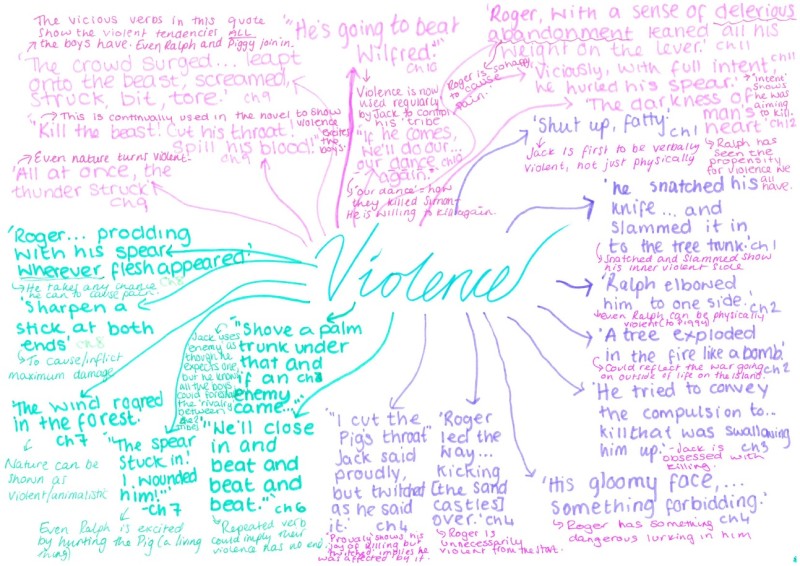 The vicious verbs in this quote
show the violent tendencies ALL
the boys have. Even Ralph and Piggy join in.
'The crowd surged... leapt
onto the beast, screamed,
struck, bit, tore.' ch9
This is continually used in the novel to show
violence
excites
the
boys.
"Kill the beast! Cut his throat!
Spill his blood!"
ch9
Even nature turns violent.
'All at once, the
thunder struck'
ch9
"He's going to beat
Wilfred."
ch10
Violence is now
used regularly
by Jack to control
his tribe
"If he comes,
we'll do our...
our dance ch10
again."
'our dance' = how
they killed Simon.
He is willing to kill again.
'Roger, with a sense of delerious
abandonment leaned all his
weight on the lever.' ch11
Roger is so happy
to cause
pain.
'Viciously, with full intent, ch11
he hurled his spear.'
'Intent'
shows
he was
aiming
to kill.
'The darkness of
man's
heart' ch12
Ralph has
seen the
propensity
for violence we
all
have.
'Shut up, fatty.' ch1
Jack is first to be verbally
violent, not just physically
'he snatched his
knife... and
slammed it in
to the tree trunk.' ch1
Snatched and slammed show
his inner violent side
'Ralph elbowed
him to one side.' ch2
even Ralph can be physically
violent (to Piggy)
'A tree exploded
in the fire like a bomb.'
ch2
Could reflect the war going
on outside of life on the island.
'He tried to convey
the compulsion to...
kill that was swallowing
him up.' - Jack is
ch3
obsessed with
killing.
'His gloomy face,...
something forbidding.'
ch4
Roger has something
dangerous lurking in him
Violence
'Roger... prodding
with his spear
wherever flesh appeared'
ch8
He takes any chance
he can to cause pain.
'Sharpen a
stick at both
ends' ch8
To cause/inflict
maximum damage
'The wind roared
in the forest.'
ch7
Nature can be
shown as
violent/unimalistic
"The spear
stuck in!
I wounded
him!"
-ch7
Even Ralph is excited
by hunting the Pig (a living
thing)
Jack uses
enemy as
though he
expects one
but he knows
all the boys
could foretale
the rivalry
between
"Shove a palm
trunk under
that and
if an ch6
enemy
came..."
"We'll close
in and
beat and
beat and
beat." ch6
Repeated verb
could imply their
violence has no end.
"I cut the
Pig's throat"
Jack said
proudly,
but twitched
as he said
it.' ch4
'Proudly' shows his
joy of killing but
twitched implies he
was affected by it.
'Roger
led the
way...
kicking
[the sand
castles]
over.' ch4
Roger is
unnecessarily
violent from the start.